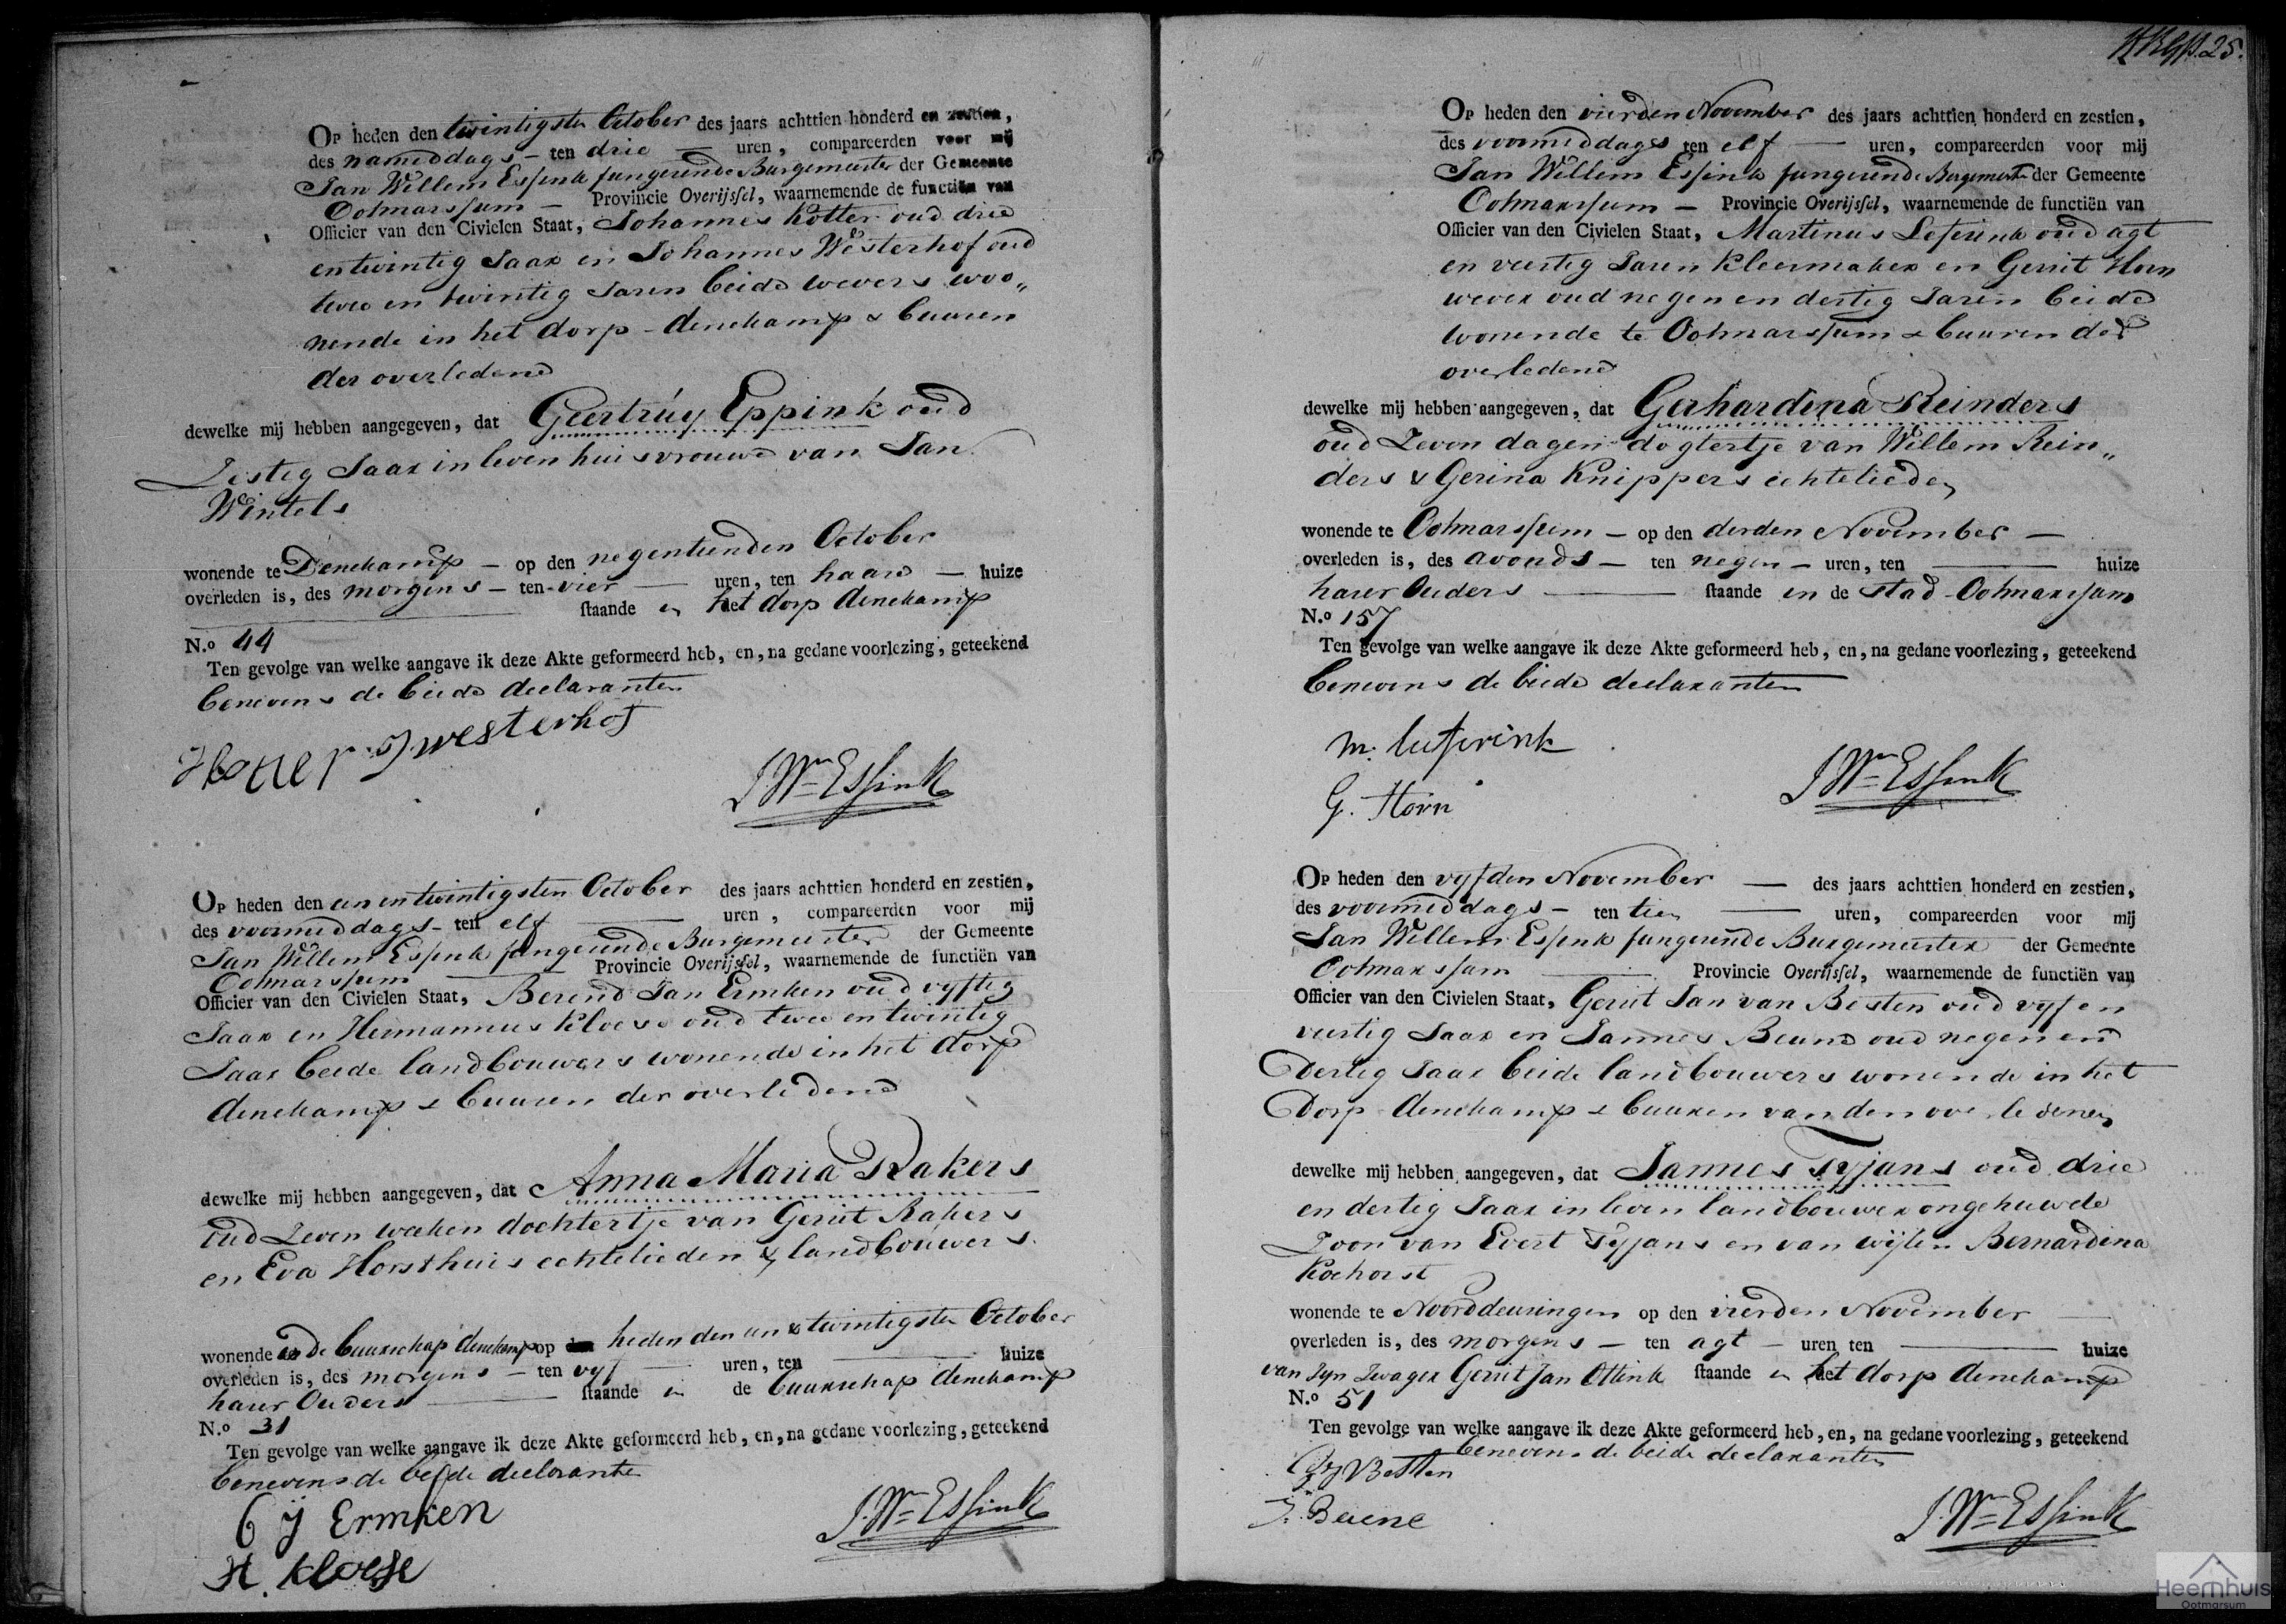 25.
Op heden den twintigsten October des jaars achttien honderd en zestien,
des nameddags - ten drie — uren, compareerden voor mij
Jan Willem Essink fungerende Burgemeester der Gemeente
Ootmarssum — Provincie Overijssel, waarnemende de functiën van
Officier van den Civielen Staat, Johannes Kötter oud drie
en twintig Jaar en Johannes Westerhof oud
twee en twintig Jaren beide wevers woo„
nende in het dorp denekamp & buuren
der overledene
dewelke mij hebben aangegeven, dat Geertruy Eppink oud
Zestig Jaar in leven huisvrouwe van Jan
Wintels
wonende te Denekamp — op den negentienden October
overleden is, des morgens — ten vier — uren, ten haare — huize
staande in het dorp denekamp
N.o 44
Ten gevolge van welke aangave ik deze Akte geformeerd heb, en, na gedane voorlezing, geteekend
benevens de beide declaranten
J westerhof
J Wm Essink
Op heden den een en twintigsten October des jaars achttien honderd en zestien,
des voormeddags - ten elf — uren, compareerden voor mij
Jan Willem Essink fungerende Burgemeester der Gemeente
Ootmarssum — Provincie Overijssel, waarnemende de functiën van
Officier van den Civielen Staat, Berend Jan Ermken oud vyftig
Jaar en Hermannus Kloese oud twee en twintig
Jaar beide landbouwers wonende in het dorp
denekamp & buuren der overledene
dewelke mij hebben aangegeven, dat Anna Maria Rakers
oud Zeven weeken dochtertje van Gerrit Rakers
en Eva Horsthuis echtelieden & landbouwers
wonende in de buurschap denekamp op heden den een & twintigsten October
overleden is, des morgens — ten vyf — uren, ten — huize
haarer Ouders — staande in de buurschap denekamp
N.o 31
Ten gevolge van welke aangave ik deze Akte geformeerd heb, en, na gedane voorlezing, geteekend
benevens de beide declaranten
B J Ermken
H. kloese
J. Wm Essink
Op heden den vierden November des jaars achttien honderd en zestien,
des voormeddags ten elf — uren, compareerden voor mij
Jan Willem Essink fungerende Burgemeester der Gemeente
Ootmarssum — Provincie Overijssel, waarnemende de functiën van
Officier van den Civielen Staat, Martinus Leferink oud agt
en veertig Jaren Kleermaker en Gerrit Horn
wever oud negen en dertig Jaren beide
wonende te Ootmarssum & buuren der
overledene
dewelke mij hebben aangegeven, dat Gerhardina Reinders
oud Zeven dagen dogtertje van Willem Rein„
ders & Gerina Knippers echtelieden
wonende te Ootmarssum — op den derden November —
overleden is, des avonds — ten negen — uren, ten — huize
haarer Ouders — staande in de stad Ootmarssum
N.o 157
Ten gevolge van welke aangave ik deze Akte geformeerd heb, en, na gedane voorlezing, geteekend
benevens de beide declaranten
m. leferink
G. Horn
J Wm Essink
Op heden den vyfden November — des jaars achttien honderd en zestien,
des voormeddags — ten tien — uren, compareerden voor mij
Jan Willem Essink fungerende Burgemeester der Gemeente
Ootmarssum — Provincie Overijssel, waarnemende de functiën van
Officier van den Civielen Staat, Gerrit Jan van Besten oud vyf en
veertig Jaar en Jannes Beune oud negen en
Dertig Jaar beide landbouwers wonende in het
Dorp denekamp & buuren van den overledenen
dewelke mij hebben aangegeven, dat Jannes Tyjans oud drie
en dertig Jaar in leven landbouwer ongehuwde
Zoon van Evert Tyjans en van wijlen Bernardina
Kochorst
wonende te Noorddeuringen op den vierden November —
overleden is, des morgens — ten agt — uren ten — huize
van Zyn Zwager Gerrit Jan Ottink staande in het dorp denekamp
N.o 51
Ten gevolge van welke aangave ik deze Akte geformeerd heb, en, na gedane voorlezing, geteekend
benevens de beide declaranten
Besten
J. Beune
J. Wm Essink
Heemhuis
Ootmarsum